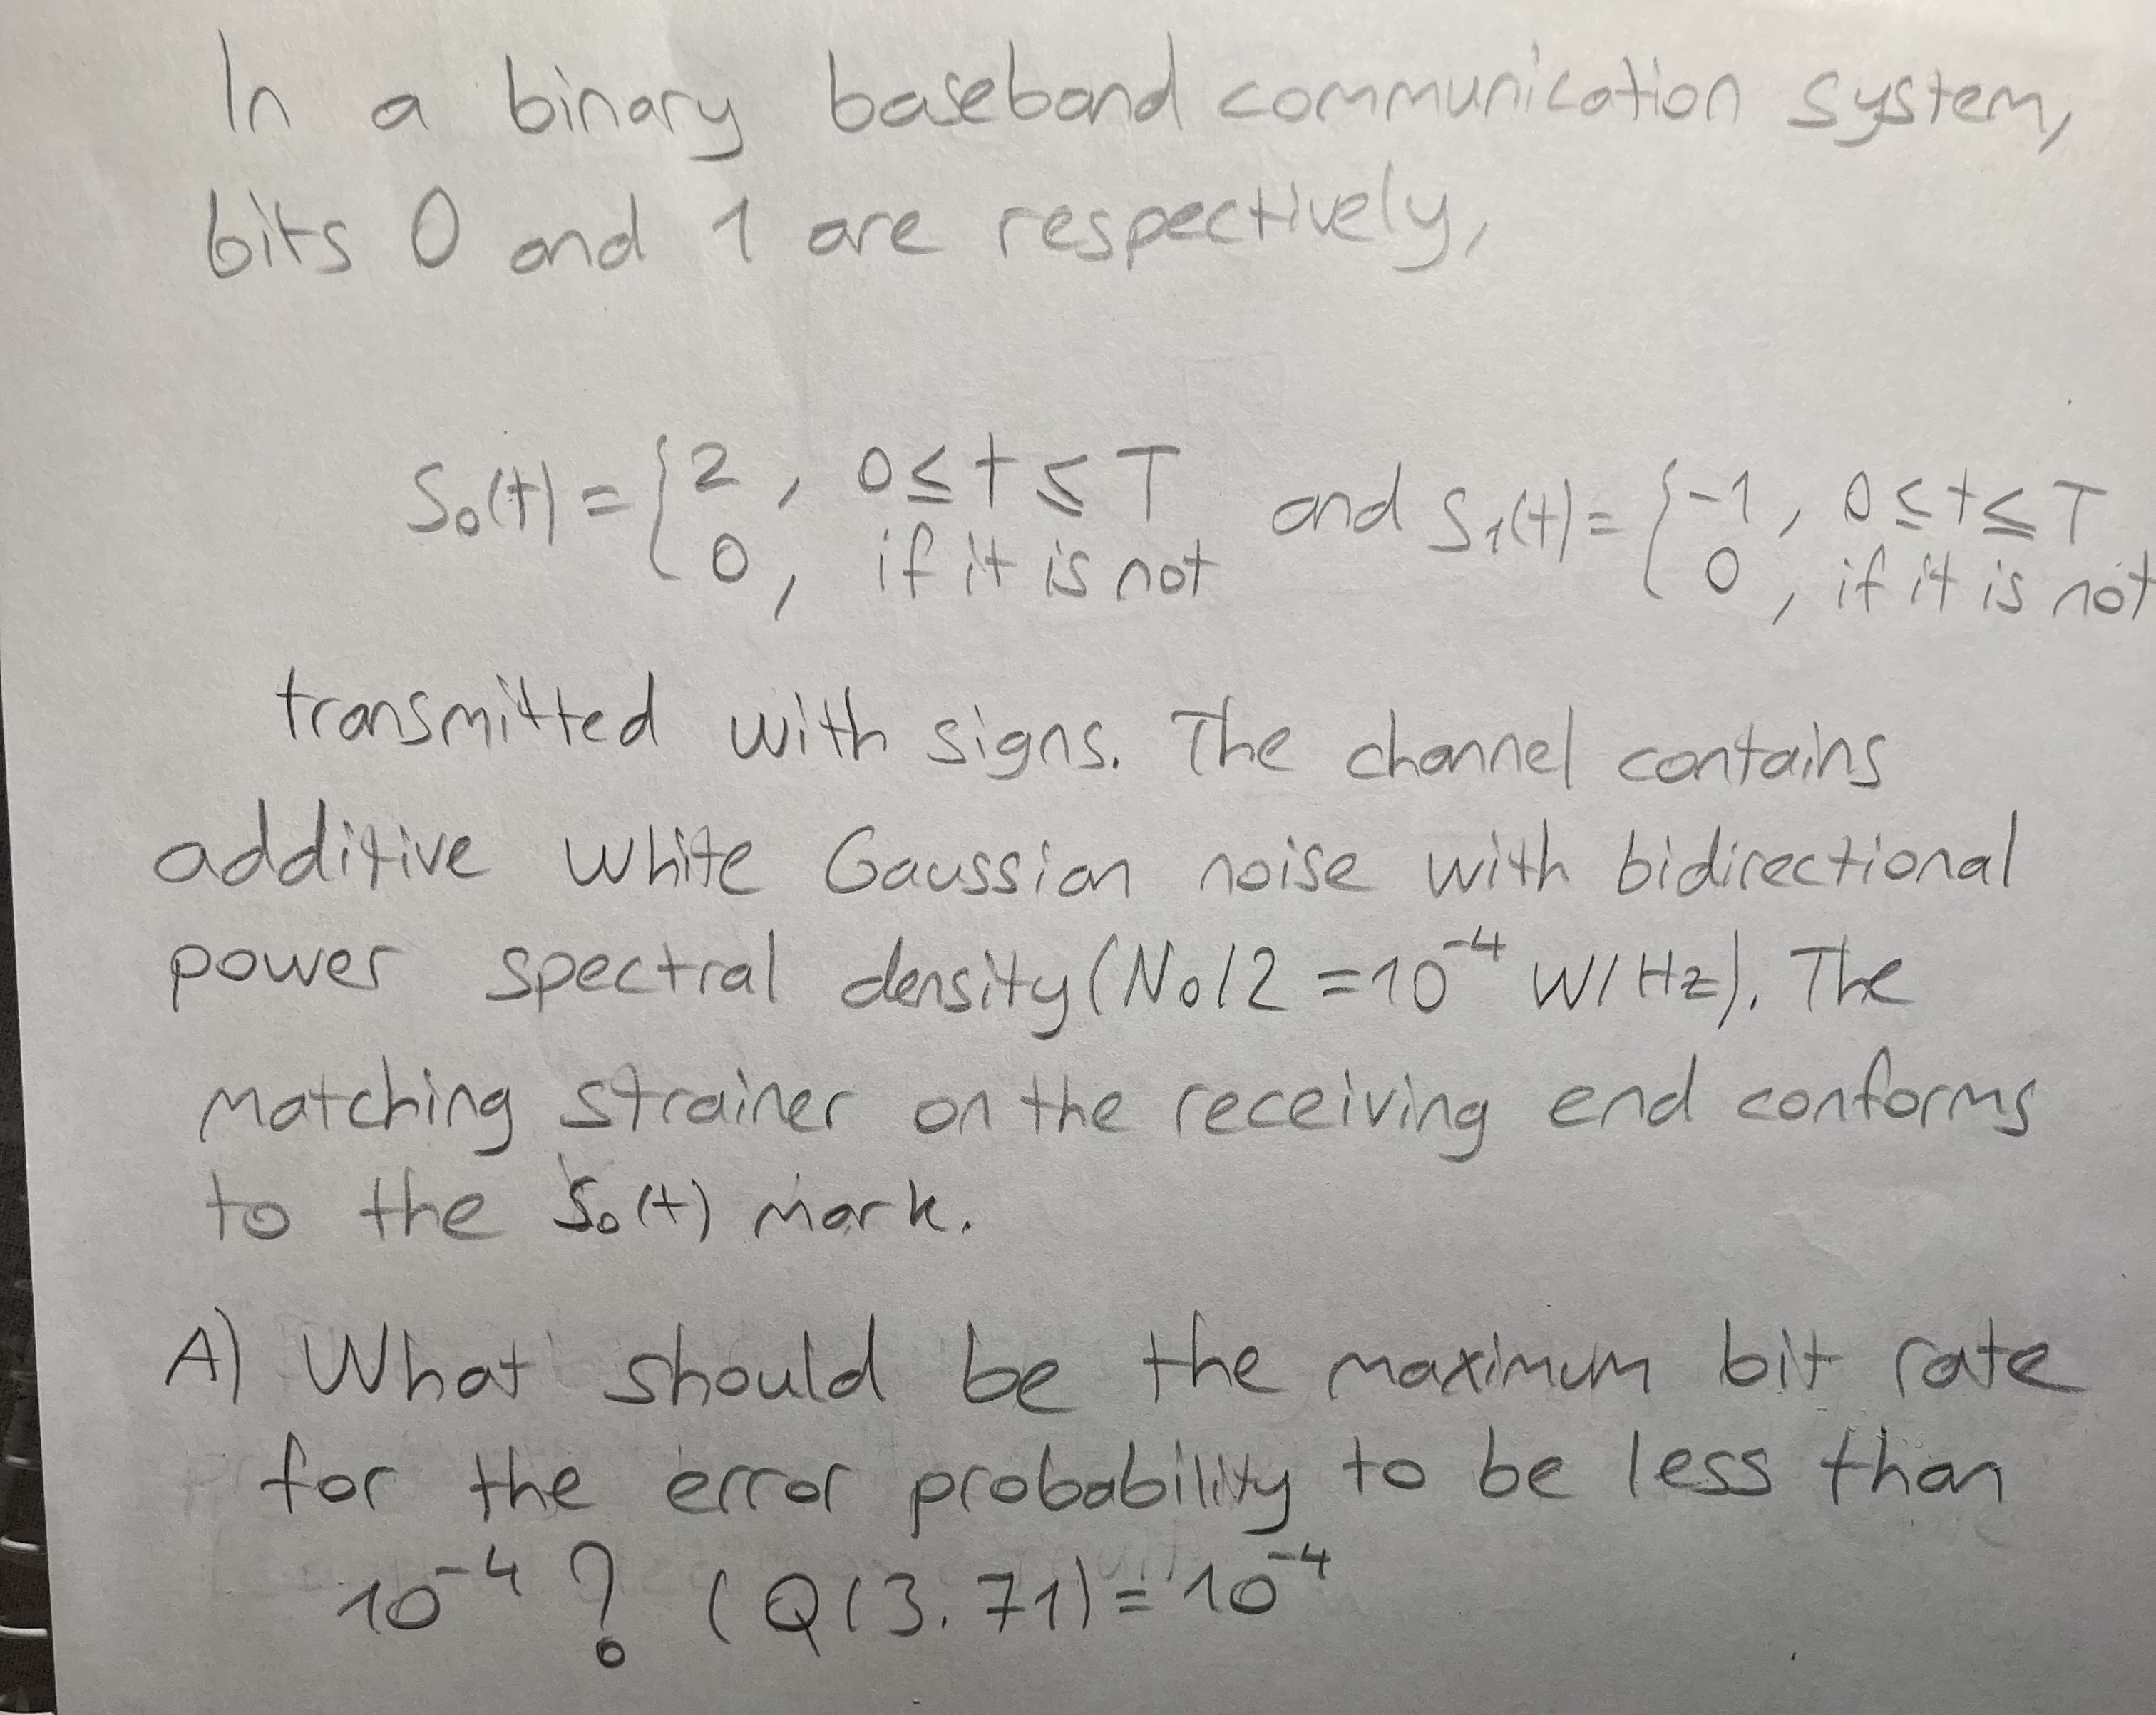 In a binary baseband communication system,
bits 0 and 1 are respectively,
S₀(t) = { 2, 0 ≤ t ≤ T and S₁(t) = { -1, 0 ≤ t ≤ T
0, if it is not 0, if it is not
transmitted with signs. The channel contains
additive white Gaussian noise with bidirectional
power spectral density (N₀/2 = 10⁻⁴ W/Hz). The
matching strainer on the receiving end conforms
to the S₀(t) mark.
A) What should be the maximum bit rate
for the error probability to be less than
10⁻⁴ ? (Q(3.71) = 10⁻⁴